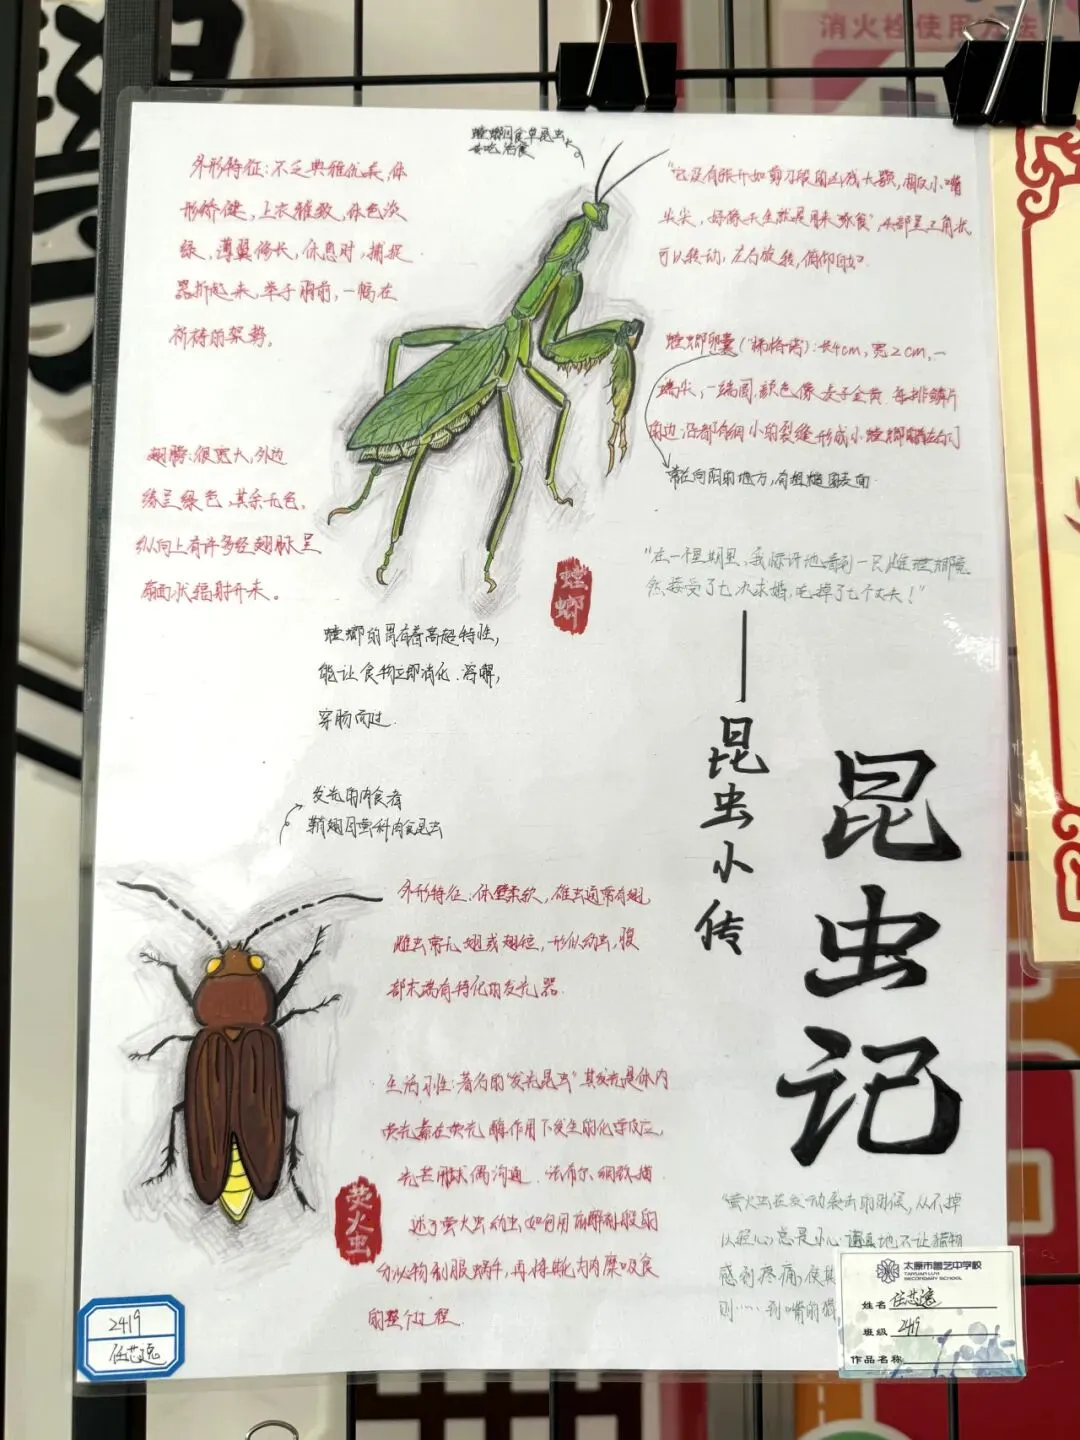 消火栓使用方法
螳螂目食草昆虫
喜吃活食
外形特征:不乏典雅优美,体
形矫健,上衣雅致,体色淡
绿,薄翼修长,休息时,捕捉
器折起来,举于胸前,一幅在
祈祷的架势。
"它没有张开如剪刀般的凶残大颚,相反小嘴
尖尖,好像天生就是用来啄食"头部呈三角状
可以转动,左右旋转,俯仰自如.
螳螂卵囊("桶格诺):长4cm,宽2cm,一
端尖,一端圆,颜色像麦子金黄.每排鳞片
沿都有细小的裂缝形成小螳螂
常在向阳的地方,有粗糙图表面
翅膀:很宽大,外边
缘呈绿色,其余无色,
纵向上有许多经翅脉呈
扇面状辐射开来。
"在一个星期里,我惊讶地看到一只雌螳螂竟
然接受了七次求婚,吃掉了七个丈夫!"
螳螂
螳螂的胃有着高超特性,
能让食物立即消化.溶解,
穿肠而过.
——昆虫小传
昆虫记
发光的肉食者
鞘翅目萤科肉食昆虫
外形特征:体壁柔软,雄虫通常有翅,
雌虫常无翅或翅短,形似幼虫,腹
部末端有特化的发光器.
生活习性:著名的"发光昆虫"其发光是体内
荧光素在荧光酶作用下发生的化学反应,
光芒用求偶沟通.法布尔细致描
述了萤火虫幼虫,如何用麻醉剂般的
分泌物制服蜗牛,再将其化为肉糜吸食
的整个过程.
荧火虫
"萤火虫在发动袭击的时候,从不掉
以轻心,总是小心谨慎地不让猎物
感到疼痛,使其
则……到嘴的猎
太原市鲁艺中学校
TAIYUAN LUYI
SECONDARY SCHOOL
姓名 任芯逸
班级 2419
作品名称
2419
任芯逸